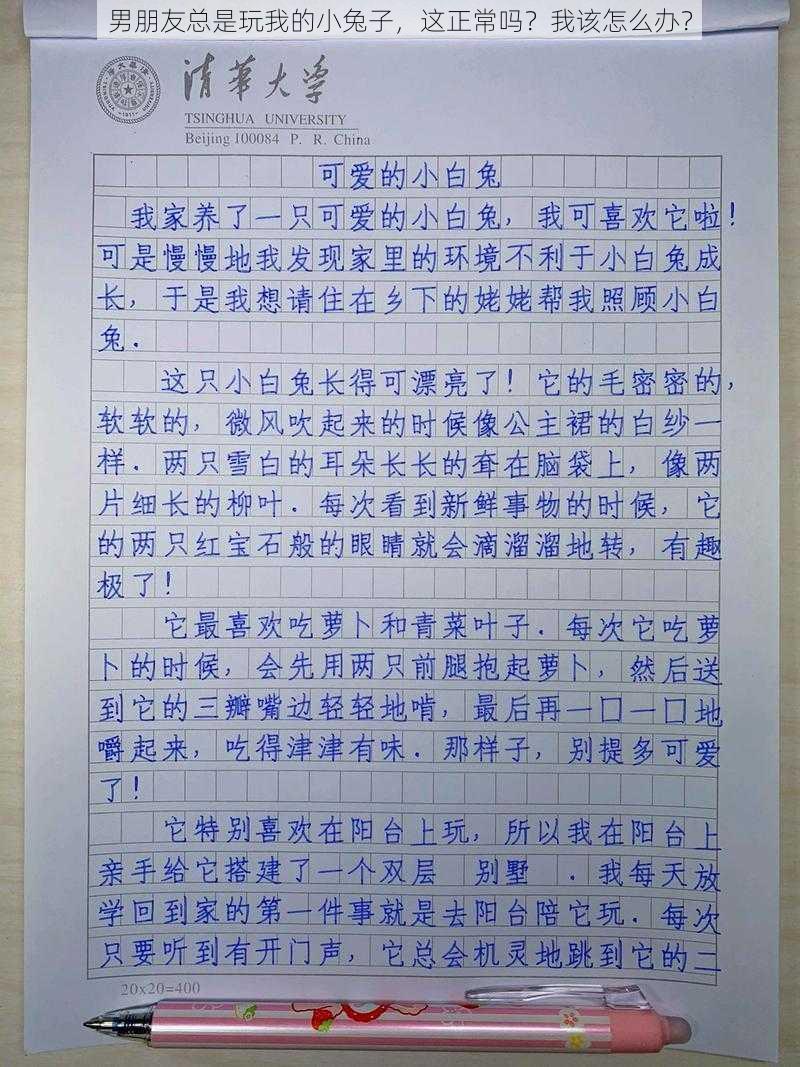 男朋友总是玩我的小兔子，这正常吗？我该怎么办？
清华大学
TSINGHUA UNIVERSITY
Beijing 100084 P. R. China
可爱的小白兔
我家养了一只可爱的小白兔，我可喜欢它啦！
可是慢慢地我发现家里的环境不利于小白兔成
长，于是我想请住在乡下的姥姥帮我照顾小白
兔．
这只小白兔长得可漂亮了！它的毛密密的，
软软的，微风吹起来的时候像公主裙的白纱一
样．两只雪白的耳朵长长的耷在脑袋上，像两
片细长的柳叶．每次看到新鲜事物的时候，它
的两只红宝石般的眼睛就会滴溜溜地转，有趣
极了！
它最喜欢吃萝卜和青菜叶子．每次它吃萝
卜的时候，会先用两只前腿抱起萝卜，然后送
到它的三瓣嘴边轻轻地啃，最后再一口一口地
嚼起来，吃得津津有味．那样子，别提多可爱
了！
它特别喜欢在阳台上玩，所以我在阳台上
亲手给它搭建了一个双层 别墅 ．我每天放
学回到家的第一件事就是去阳台陪它玩．每次
只要听到有开门声，它总会机灵地跳到它的二
20x20=400